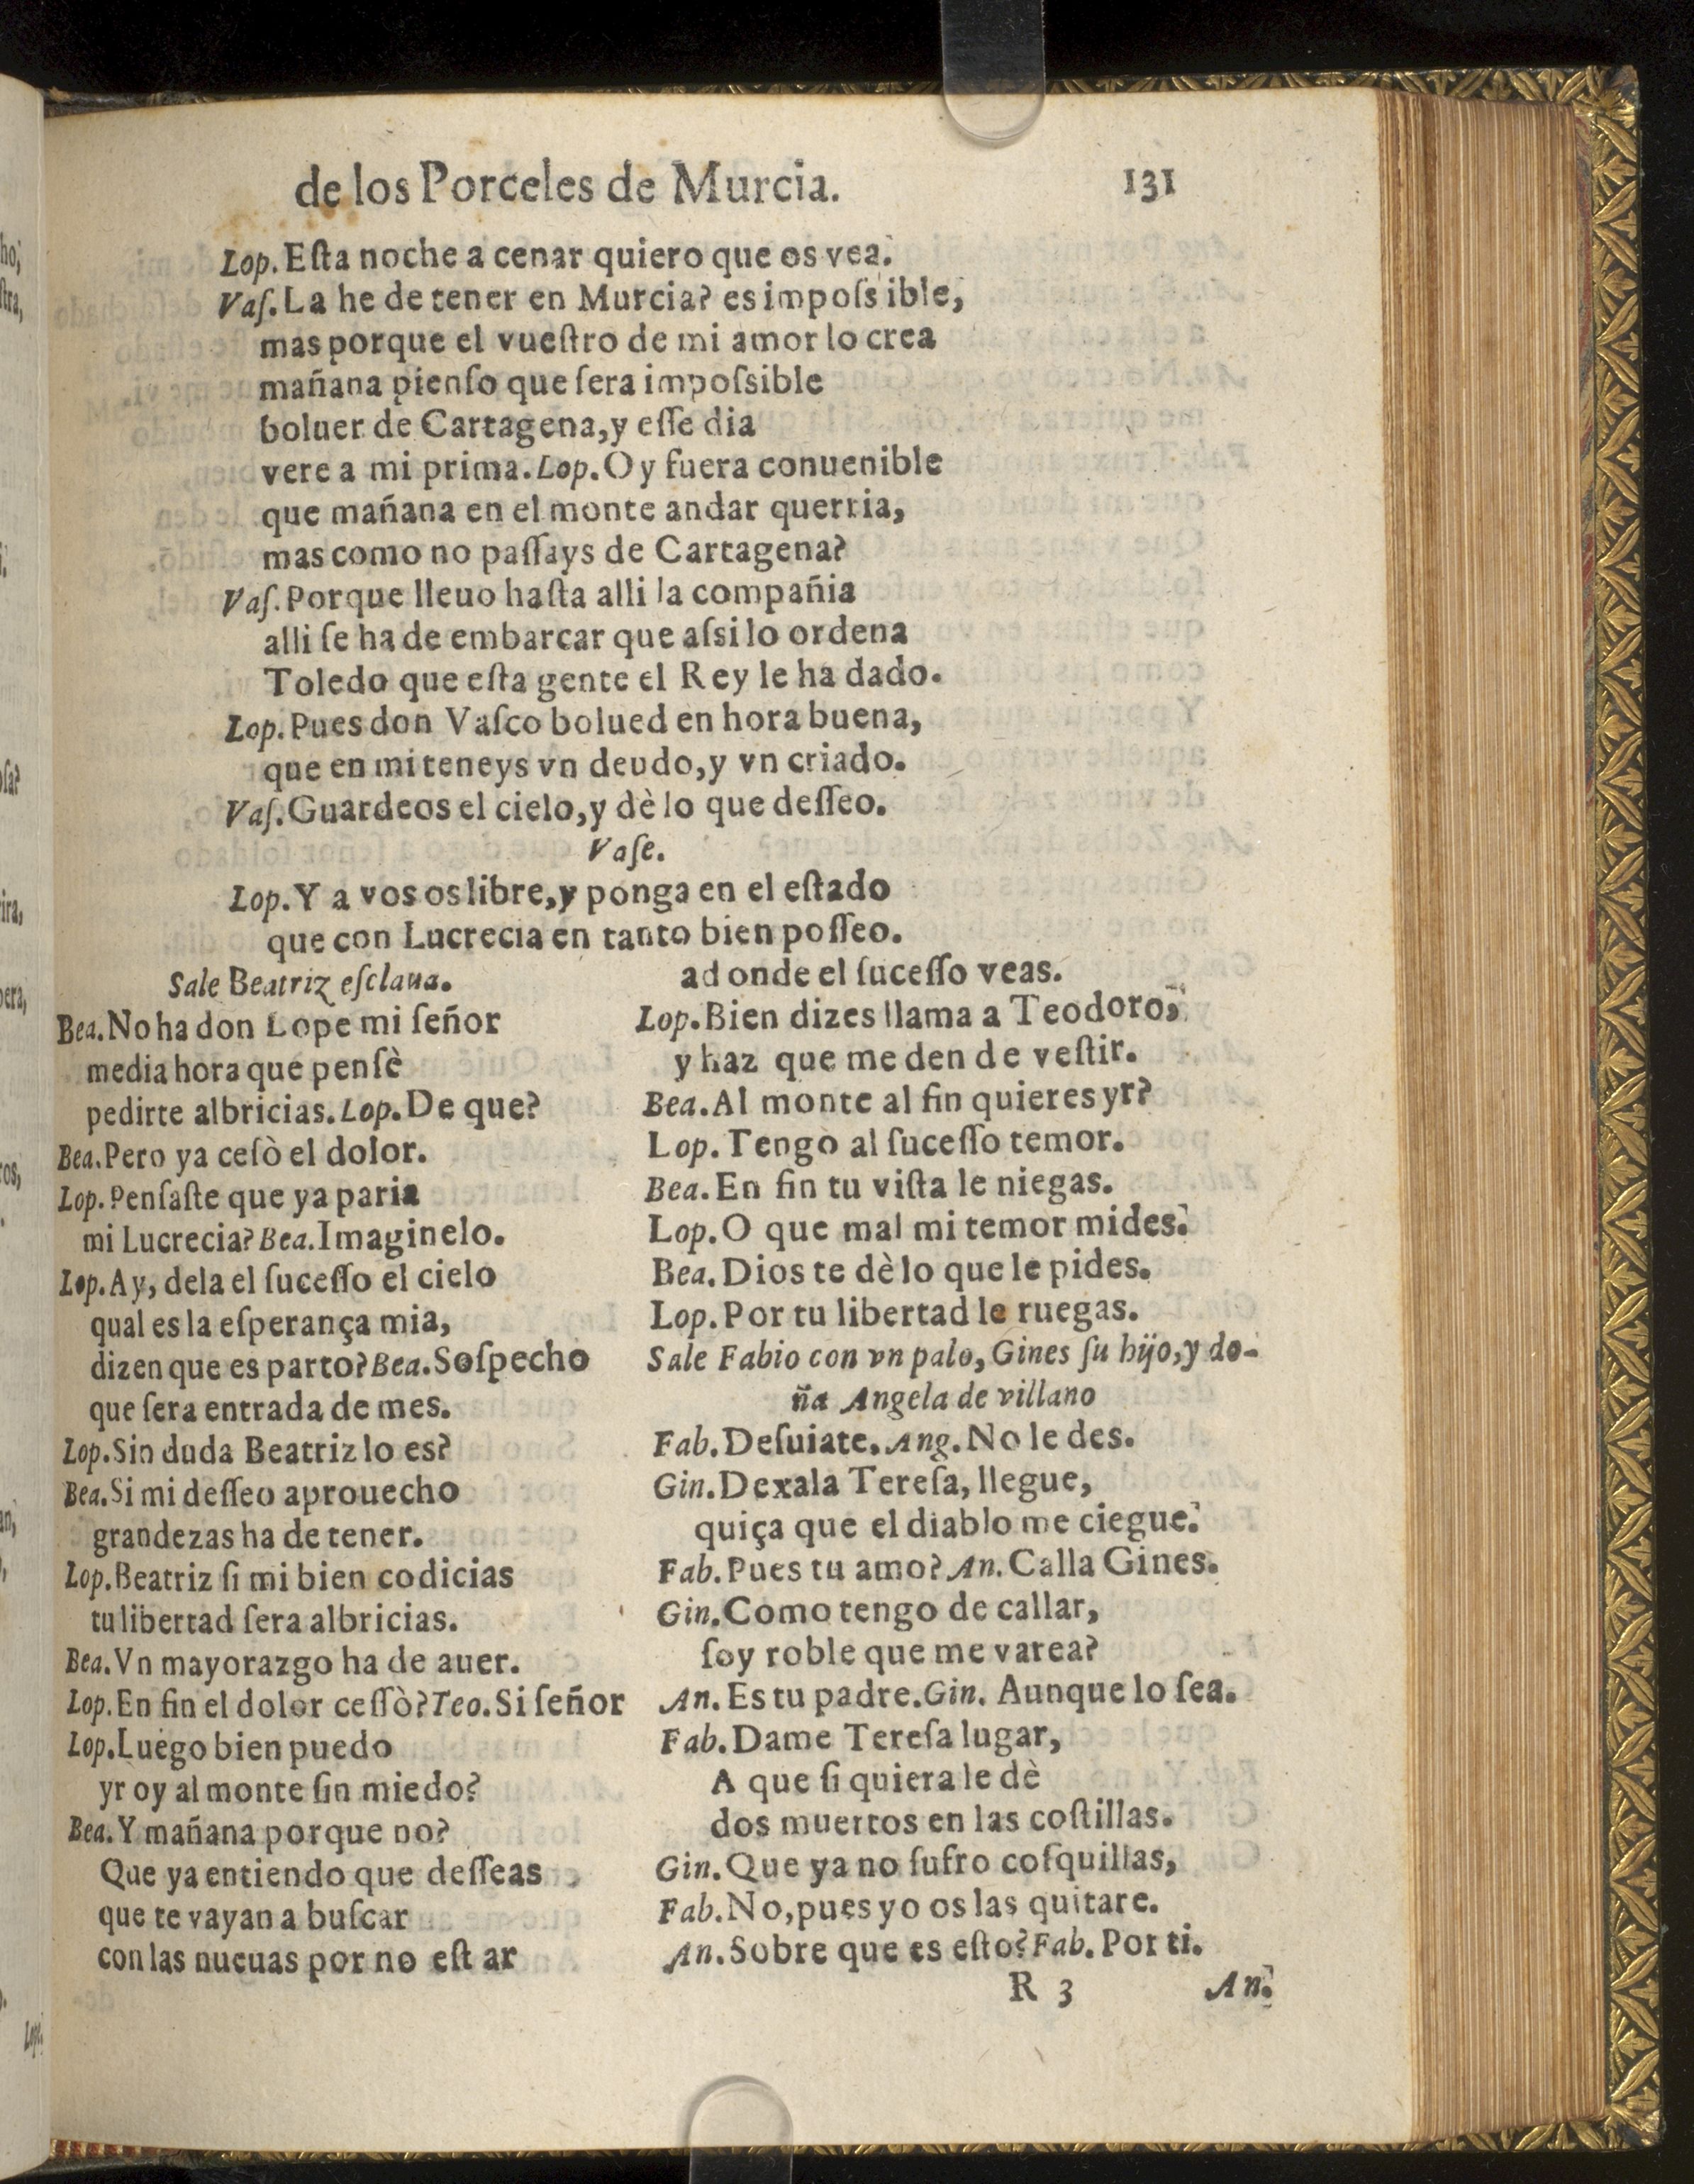 de los Porceles de Murcia. 131
Lop. Eſta noche a cenar quiero que os vea.
Vaſ. La he de tener en Murcia? es impoſsible,
mas porque el vueſtro de mi amor lo crea
mañana pienſo que ſera impoſsible
boluer de Cartagena, y eſſe dia
vere a mi prima. Lop. Oy fuera conuenible
que mañana en el monte andar querria,
mas como no paſſays de Cartagena?
Vaſ. Porque lleuo haſta alli la compañia
alli ſe ha de embarcar que aſsi lo ordena
Toledo que eſta gente el Rey le ha dado.
Lop. Pues don Vaſco bolued en hora buena,
que en mi teneys vn deudo, y vn criado.
Vaſ. Guardeos el cielo, y dè lo que deſſeo.
Vaſe.
Lop. Y a vos os libre, y ponga en el eſtado
que con Lucrecia en tanto bien poſſeo.
Sale Beatriz eſclaua.
Bea. No ha don Lope mi ſeñor
media hora que penſè
pedirte albricias. Lop. De que?
Bea. Pero ya ceſò el dolor.
Lop. Penſaſte que ya paria
mi Lucrecia? Bea. Imaginelo.
Lop. Ay, dela el ſuceſſo el cielo
qual es la eſperança mia,
dizen que es parto? Bea. Soſpecho
que ſera entrada de mes.
Lop. Sin duda Beatriz lo es?
Bea. Si mi deſſeo aprouecho
grandezas ha de tener.
Lop. Beatriz ſi mi bien codicias
tu libertad ſera albricias.
Bea. Vn mayorazgo ha de auer.
Lop. En fin el dolor ceſſò? Teo. Si ſeñor
Lop. Luego bien puedo
yr oy al monte ſin miedo?
Bea. Y mañana porque no?
Que ya entiendo que deſſeas
que te vayan a buſcar
con las nueuas por no eſtar
adonde el ſuceſſo veas.
Lop. Bien dizes llama a Teodoro,
y haz que me den de veſtir.
Bea. Al monte al fin quieres yr?
Lop. Tengo al ſuceſſo temor.
Bea. En fin tu viſta le niegas.
Lop. O que mal mi temor mides.
Bea. Dios te dè lo que le pides.
Lop. Por tu libertad le ruegas.
Sale Fabio con vn palo, Gines ſu hijo, y do-
ña Angela de villano
Fab. Deſuiate. Ang. No le des.
Gin. Dexala Tereſa, llegue,
quiça que el diablo me ciegue.
Fab. Pues tu amo? An. Calla Gines.
Gin. Como tengo de callar,
ſoy roble que me varea?
An. Es tu padre. Gin. Aunque lo ſea.
Fab. Dame Tereſa lugar,
A que ſi quiera le dè
dos muertos en las coſtillas.
Gin. Que ya no ſufro coſquillas,
Fab. No, pues yo os las quitare.
An. Sobre que es eſto? Fab. Por ti.
R 3 An.